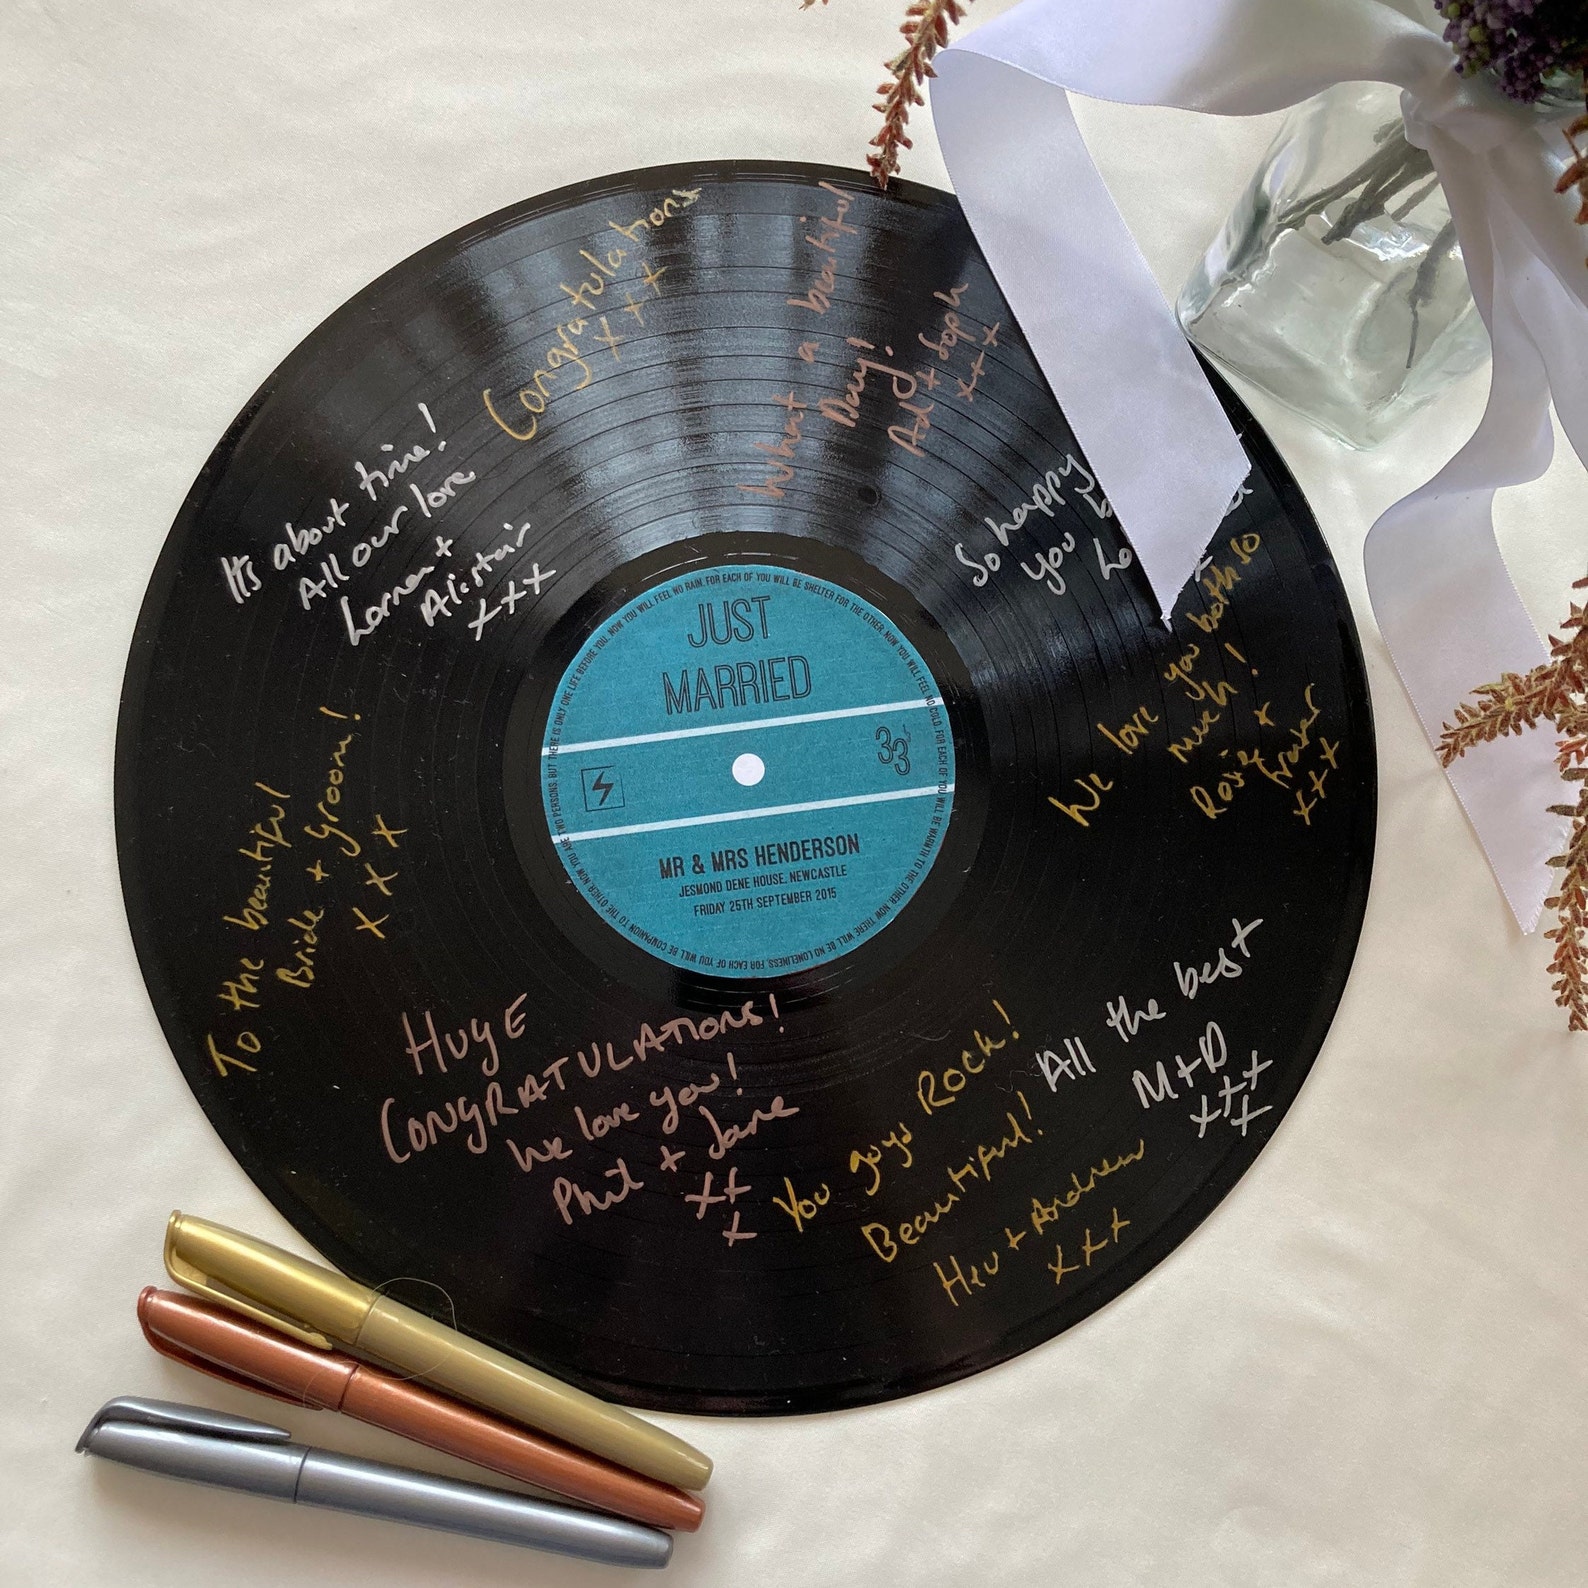 Congratulations
x x x
What a beautiful
Day!
Ad + Soph
x x x
It's about time!
All our love
Lorna +
Alistair
x x x
So happy
you
We love you both so
much!
Rosie +
x x x
To the beautiful
Bride + Groom!
x x x
JUST
MARRIED
33
MR & MRS HENDERSON
JESMOND DENE HOUSE, NEWCASTLE
FRIDAY 25TH SEPTEMBER 2015
NOW YOU WILL FEEL NO RAIN, FOR EACH OF YOU WILL BE SHELTER FOR THE OTHER. NOW YOU WILL FEEL NO COLD, FOR EACH OF YOU WILL BE WARMTH TO THE OTHER. NOW THERE WILL BE NO LONELINESS, FOR EACH OF YOU WILL BE COMPANION TO THE OTHER. NOW YOU ARE TWO PERSONS, BUT THERE IS ONLY ONE LIFE BEFORE YOU.
HUGE
CONGRATULATIONS!
We love you!
Phil + Jane
x x
x
You guys ROCK!
Beautiful!
Hev + Andrew
x x x
All the best
M+D
x x x
x